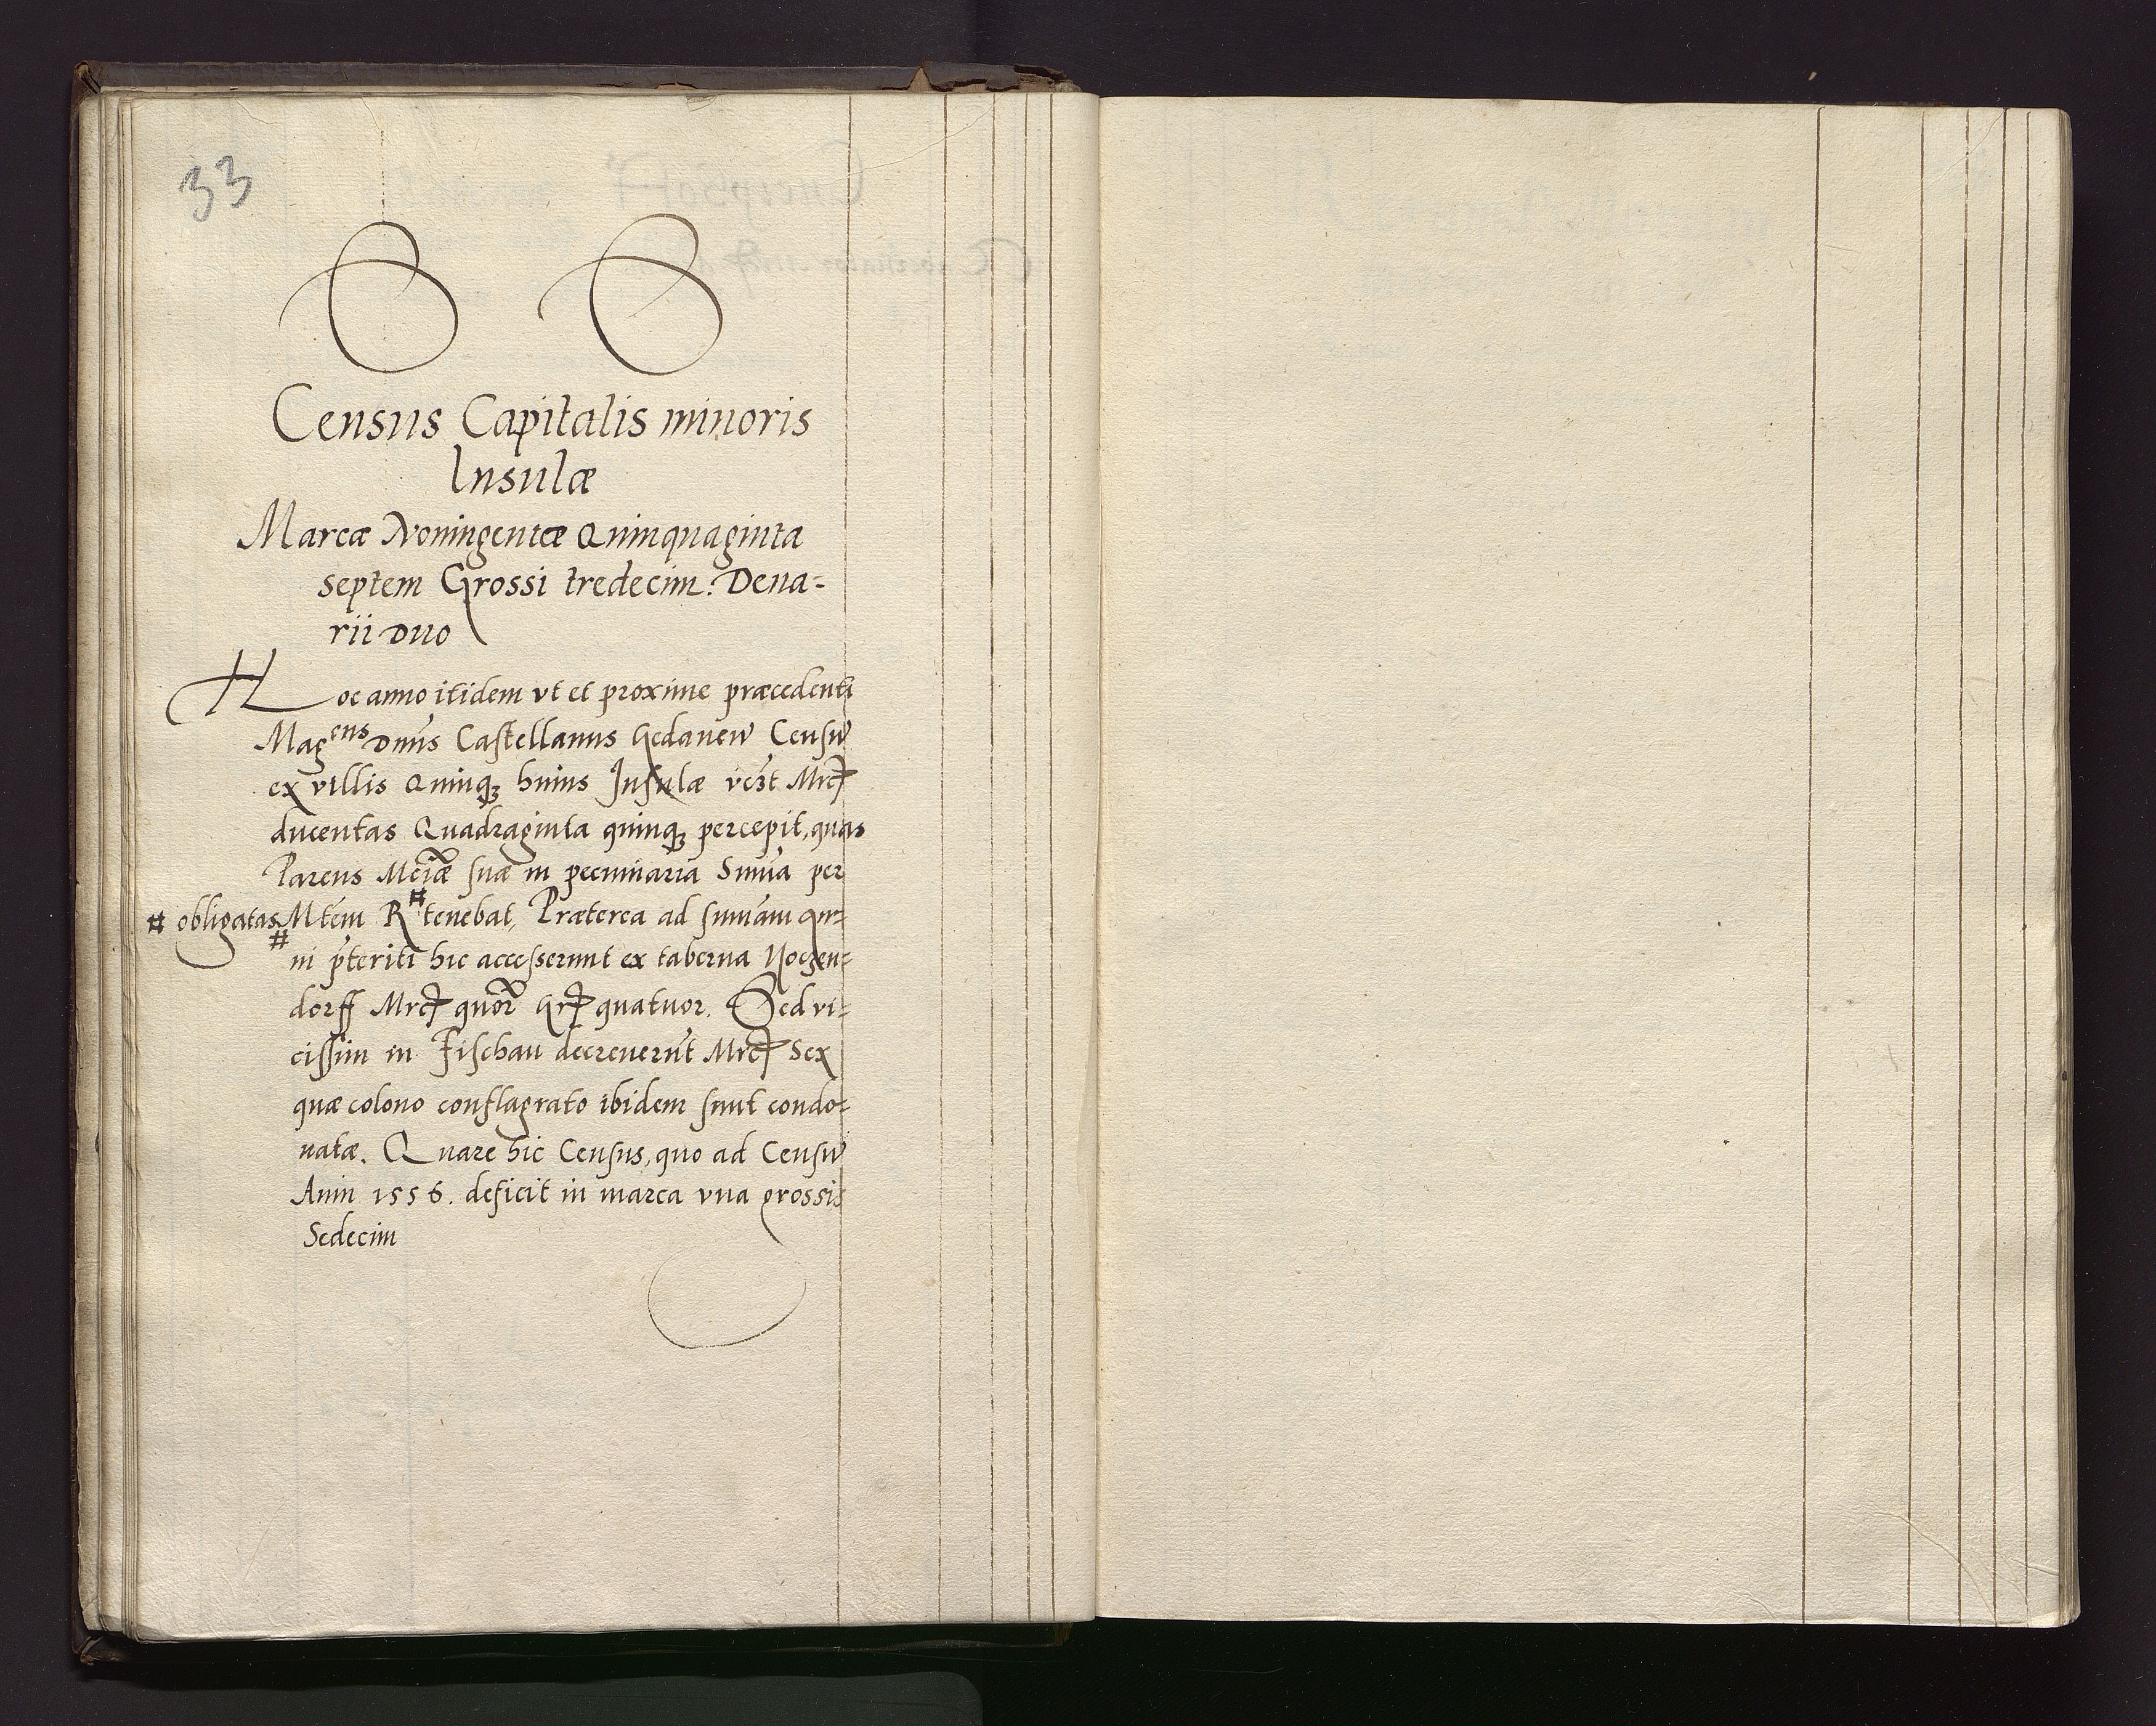 33
Census Capitalis minoris
Insulæ
Marcæ Noningentæ Quinquaginta
septem Grossi tredecim. Dena-
rii Duo
Hoc anno itidem vt et proxime præcedenti
Magens Dnus Castellanus Gedanen Censu
ex villis Quinq huius Insulæ Mrc
ducentas Quadraginta quinq percepit, quas
Parens Mciæ suæ in pecuniaria Suma per
# obligatas Mtem R # tenebat, Præterea ad sumam An-
#
ni pteriti hic accesserunt ex taberna Nogen-
dorff Mrc quor Gr quatuor. Sed vi-
cissim in Fischau decreuerut Mrc Sex
quæ colono conflagrato ibidem sunt condo-
natæ. Quare hic Census, quo ad Censu
Anni 1556. deficit in marca vna grossis
Sedecim